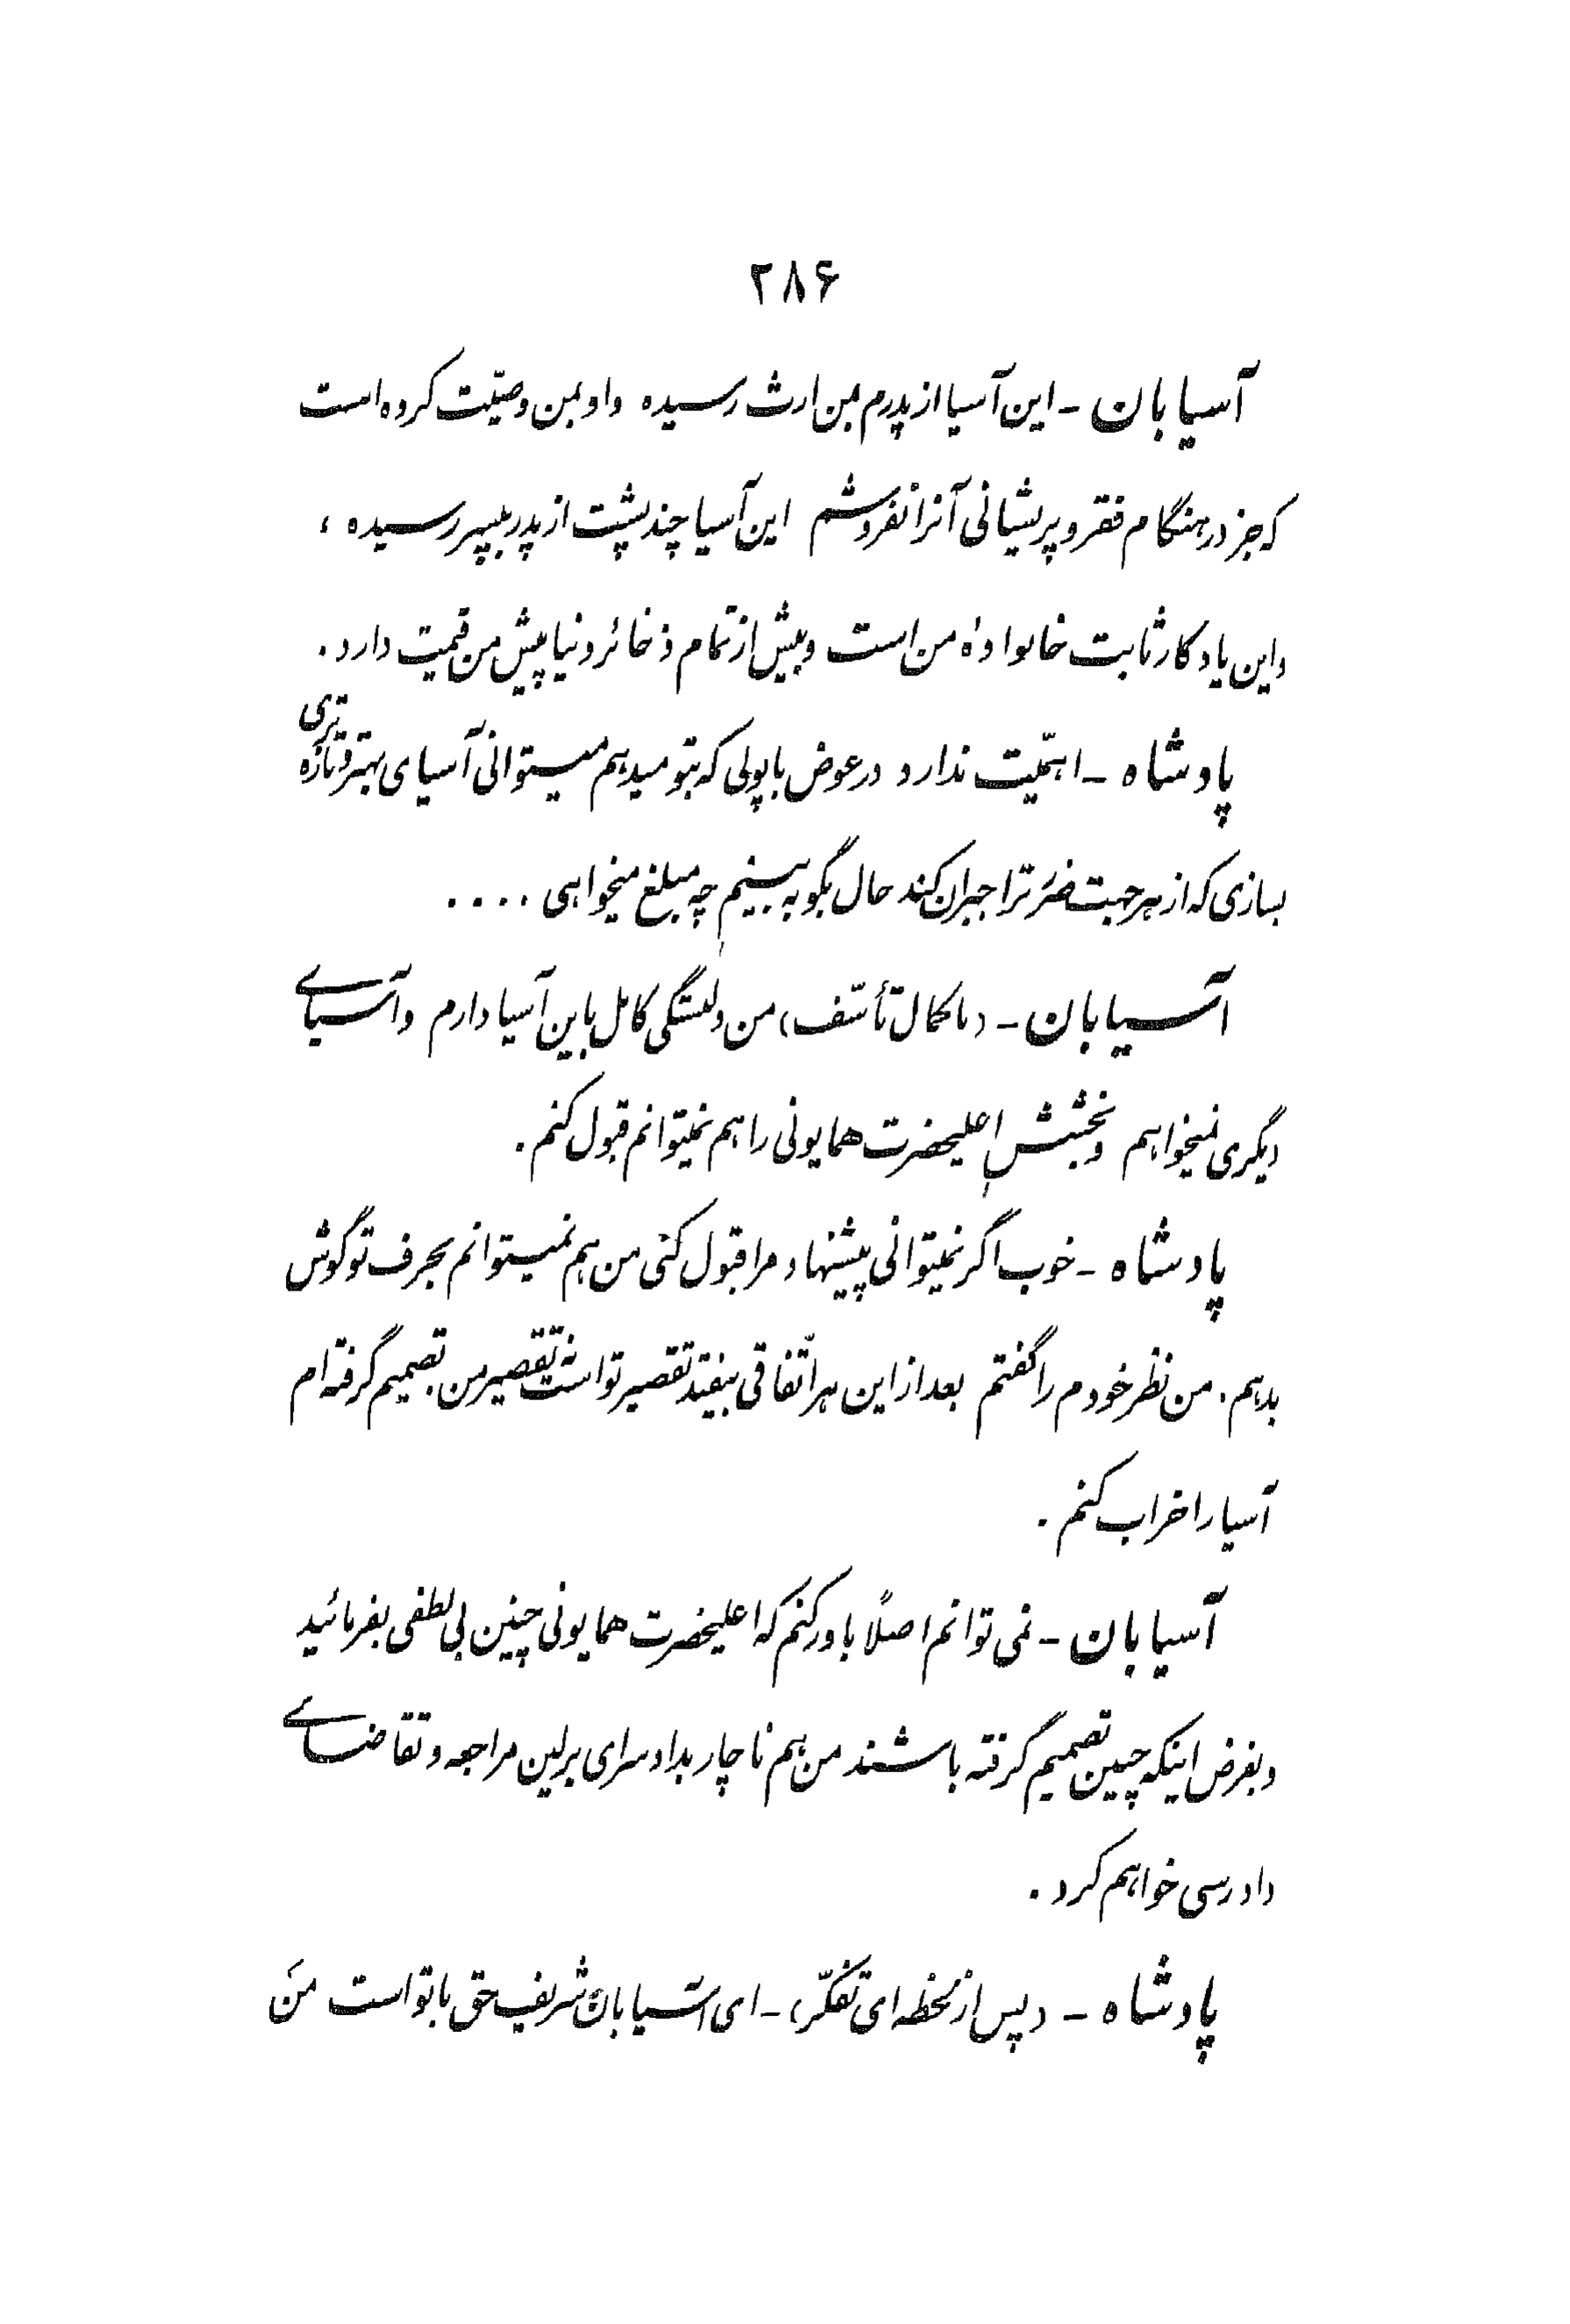 ۲۸۶
آسیابان - این آسیا از پدرم بمن ارث رسیده و او بمن وصیّت کرده است
که جز در هنگام فقر و پریشانی آنرا نفروشم این آسیا چند پشت از پدر بپسر رسیده ،
و این یادگار ثابت خانوادهٔ من است و بیش از تمام ذخائر دنیا پیش من قیمت دارد .
پادشاه - اهمّیت ندارد در عوض با پولی که بتو میدهم میتوانی آسیای بهتر و تازه تری
بسازی که از هر جهت ضرر ترا جبران کند حال بگو به بینیم چه مبلغ میخواهی ....
آسیابان - (با کمال تأسّف) من دلبستگی کامل باین آسیا دارم و آسیای
دیگری نمیخواهم و بخشش اعلیحضرت همایونی را هم نمیتوانم قبول کنم .
پادشاه - خوب اگر نمیتوانی پیشنهاد مرا قبول کنی من هم نمیتوانم بحرف تو گوش
بدهم . من نظر خودم را گفتم بعد از این هر اتّفاقی بیفتد تقصیر تو است نه تقصیر من . تصمیم گرفته ام
آسیا را خراب کنم .
آسیابان - نمی توانم اصلاً باور کنم که اعلیحضرت همایونی چنین بی لطفی بفرمائید
و بفرض اینکه چنین تصمیم گرفته باشند من هم ناچار بدادسرای برلین مراجعه و تقاضای
دادرسی خواهم کرد .
پادشاه - (پس از لحظه ای تفکّر) - ای آسیابان شریف حق با تو است من